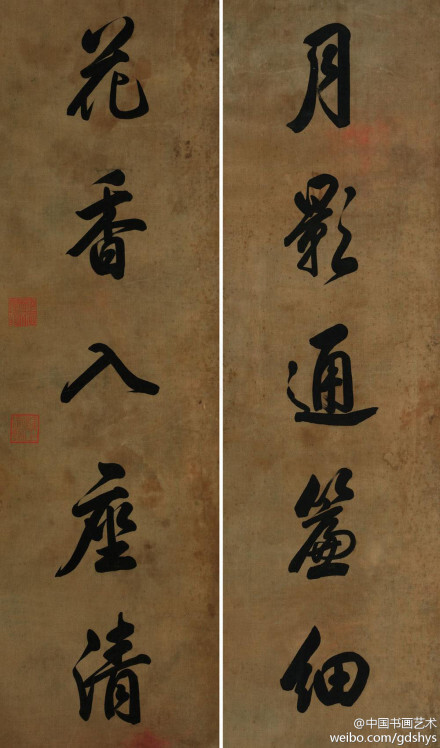 月影通簾細
花香入座清
@中国书画艺术
weibo.com/gdshys